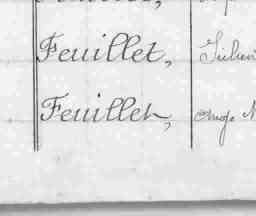 Feuillet, Julien
Feuillet, Ange